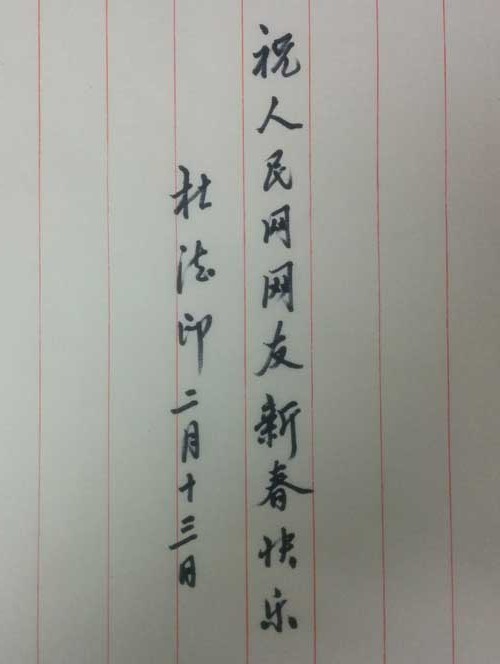 祝人民网网友新春快乐
杜德印二月十三日